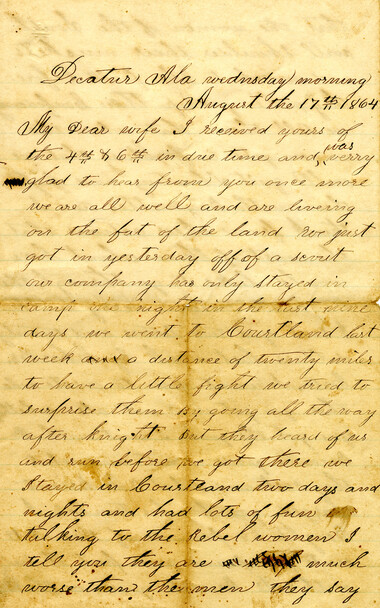 Decatur Ala wednsday morning
August the 17th 1864
My Dear wife I received yours of
the 4th & 6th in due time and was verry
glad to hear from you once more
we are all well and are liveing
on the fat of the land we just
got in yesterday off of a scout
our company has only stayed in
camp one night in the last nine
days we went to Courtland last
week a distance of twenty miles
to have a little fight we tried to
surprise them by going all the way
after knight but they heard of us
and run before we got there we
stayed in Courtland two days and
nights and had lots of fun
talking to the Rebel women I
tell you they are much
worse than the men they say